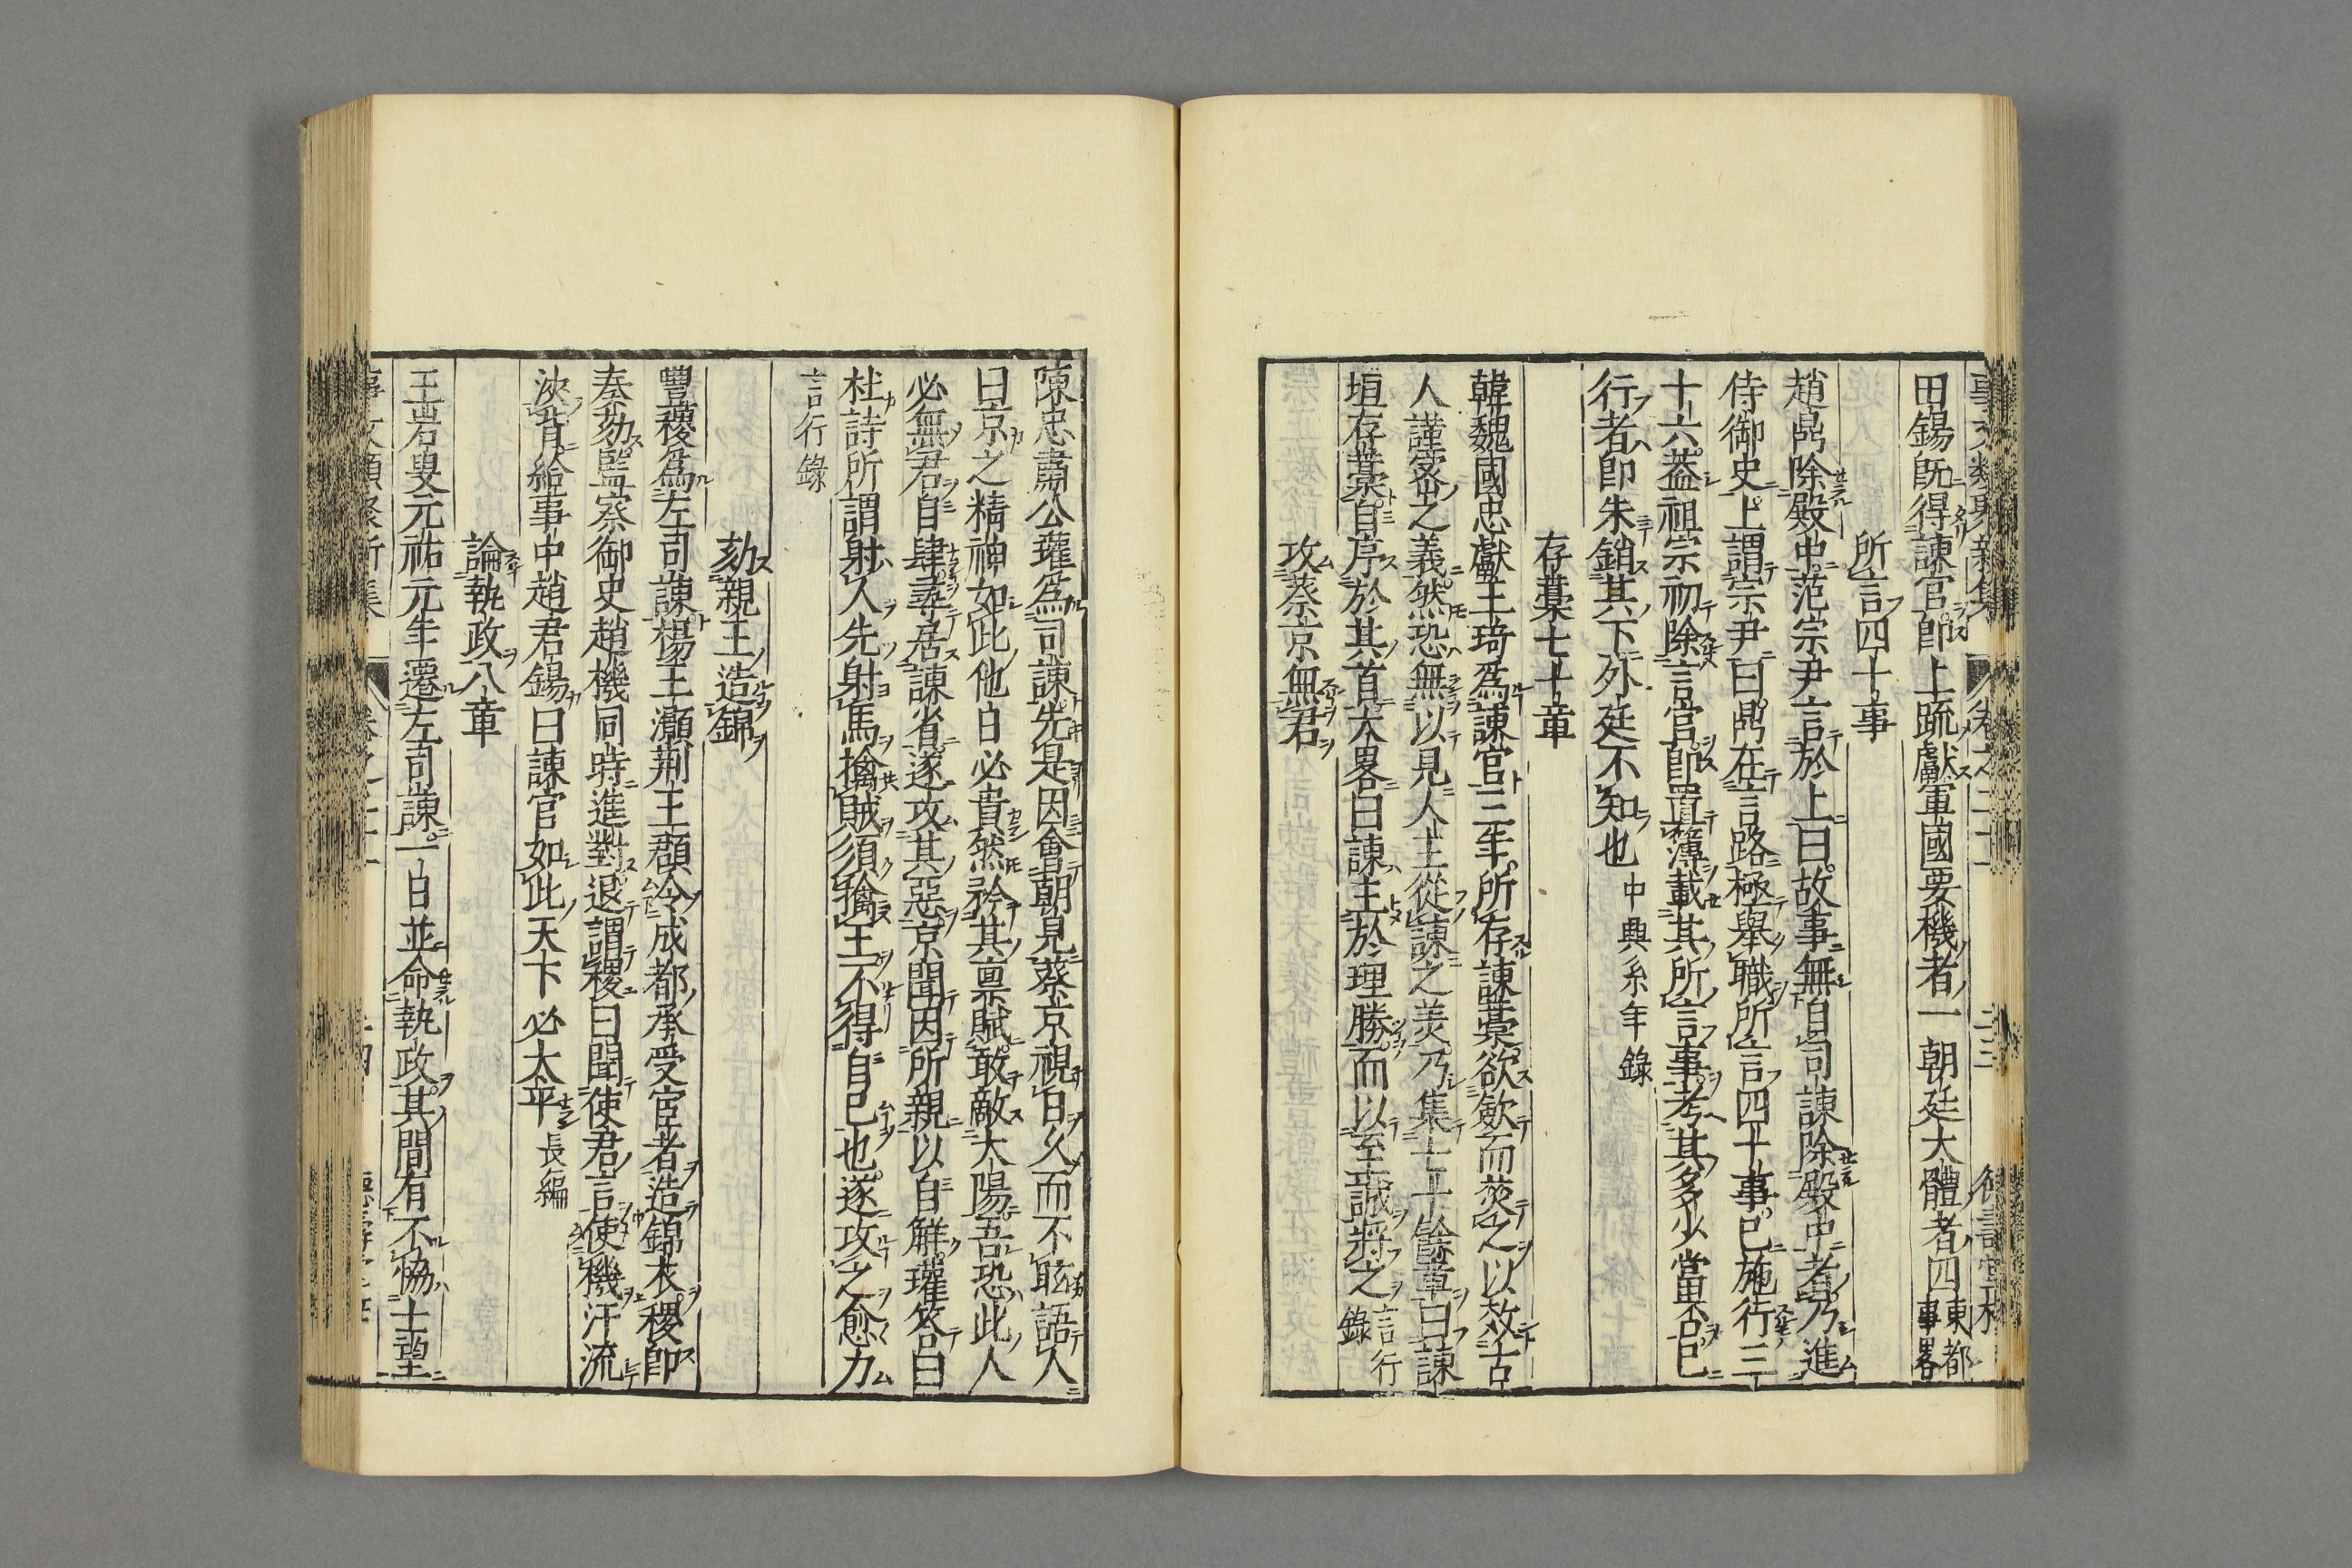 田錫既得諫官即上疏獻軍國要機者一朝廷大體者四東都事畧
所言四十事
趙鼎除殿中范宗尹言於上曰故事無自司諫除殿中者乃進
侍御史上謂宗尹曰鼎在言路極舉職所言四十事已施行三
十六葢祖宗初除言官即置簿載其所言事考其多少當否已
行者即朱銷其下外廷不知也中興系年錄
存藁七十章
韓魏國忠獻王琦爲諫官三年所存諫藁欲斂而焚之以效古
人謹密之義然恐無以見人主從諫之美乃集七十餘章曰諫
垣存藁自序於其首大畧曰諫主於理勝而以至誠將之言行錄
攻蔡京無君
陳忠肅公瓘爲司諫先是因會朝見蔡京視日久而不眩語人
曰京之精神如此他日必貴然矜其禀賦敢敵太陽吾恐此人
必無君自肆尋居諫省遂攻其惡京聞因所親以自解瓘答曰
杜詩所謂射人先射馬擒賊須擒王不得自已也遂攻之愈力
言行錄
劾親王造錦
豐稷爲左司諫楊王灝荆王頵令成都承受宦者造錦衣稷即
奏劾監察御史趙機同時進對退謂稷曰聞使君言使機汗流
浹背給事中趙君錫曰諫官如此天下必太平長編
論執政八章
王岩叟元祐元年遷左司諫一日並命執政其間有不恊士望